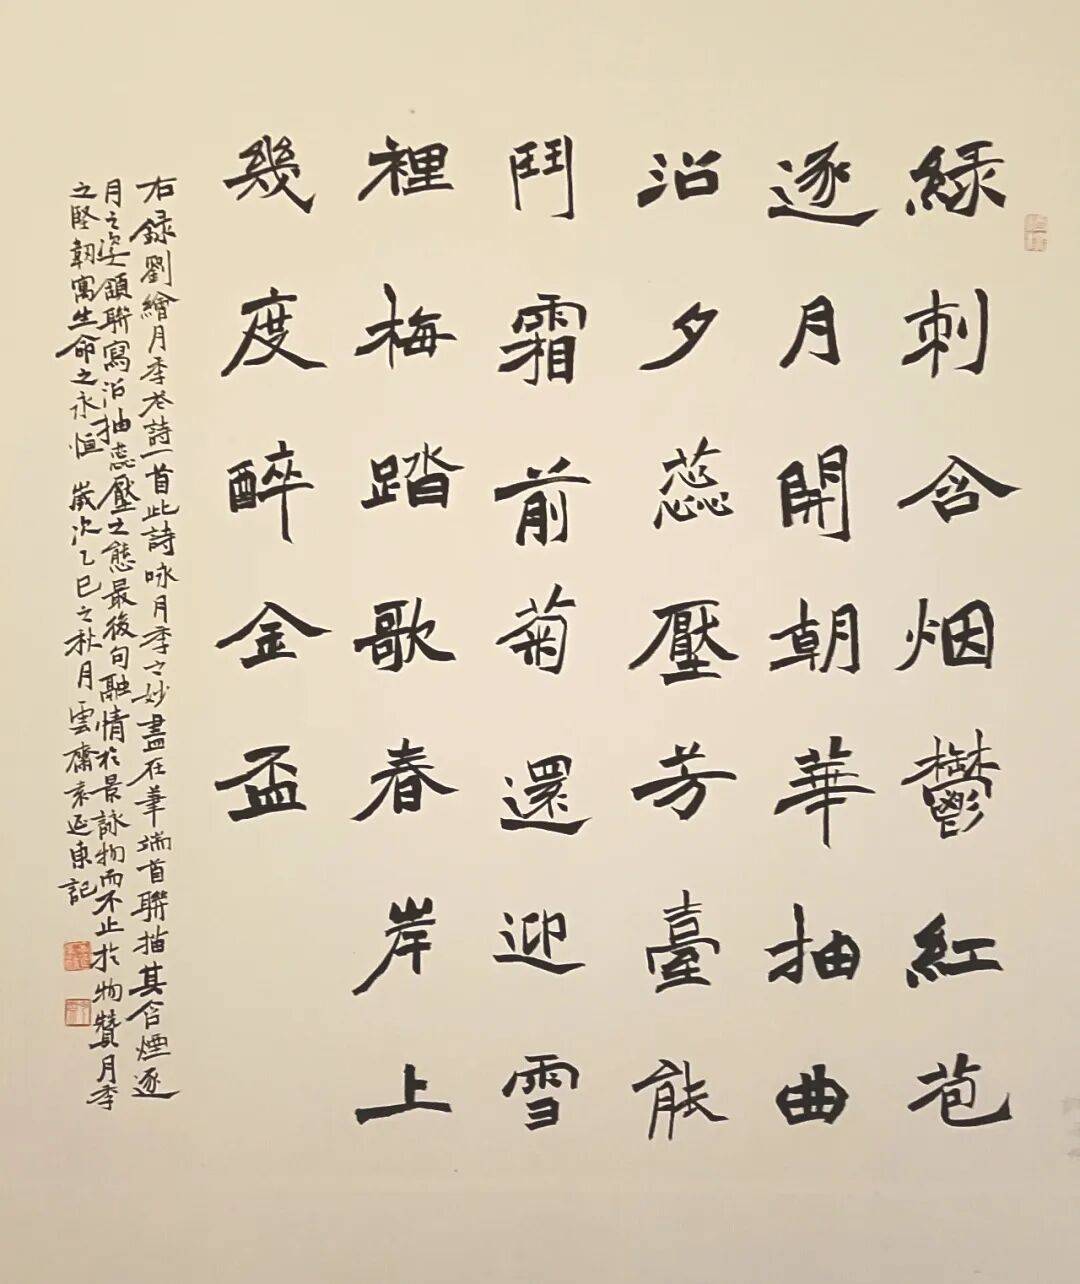 緑刺含烟鬱紅苞
逐月開朝華抽曲
沿夕蕊壓芳臺能
鬥霜前菊還迎雪
裡梅踏歌春岸上
幾度醉金盃
右録劉繪月季花詩一首此詩咏月季之妙盡在筆端首聯描其含煙逐
月之姿頷聯寫沿抽蕊壓之態最後句融情於景詠物而不止於物贊月季
之堅韌寓生命之永恒 歲次乙巳之秋月雲齋袁延東記